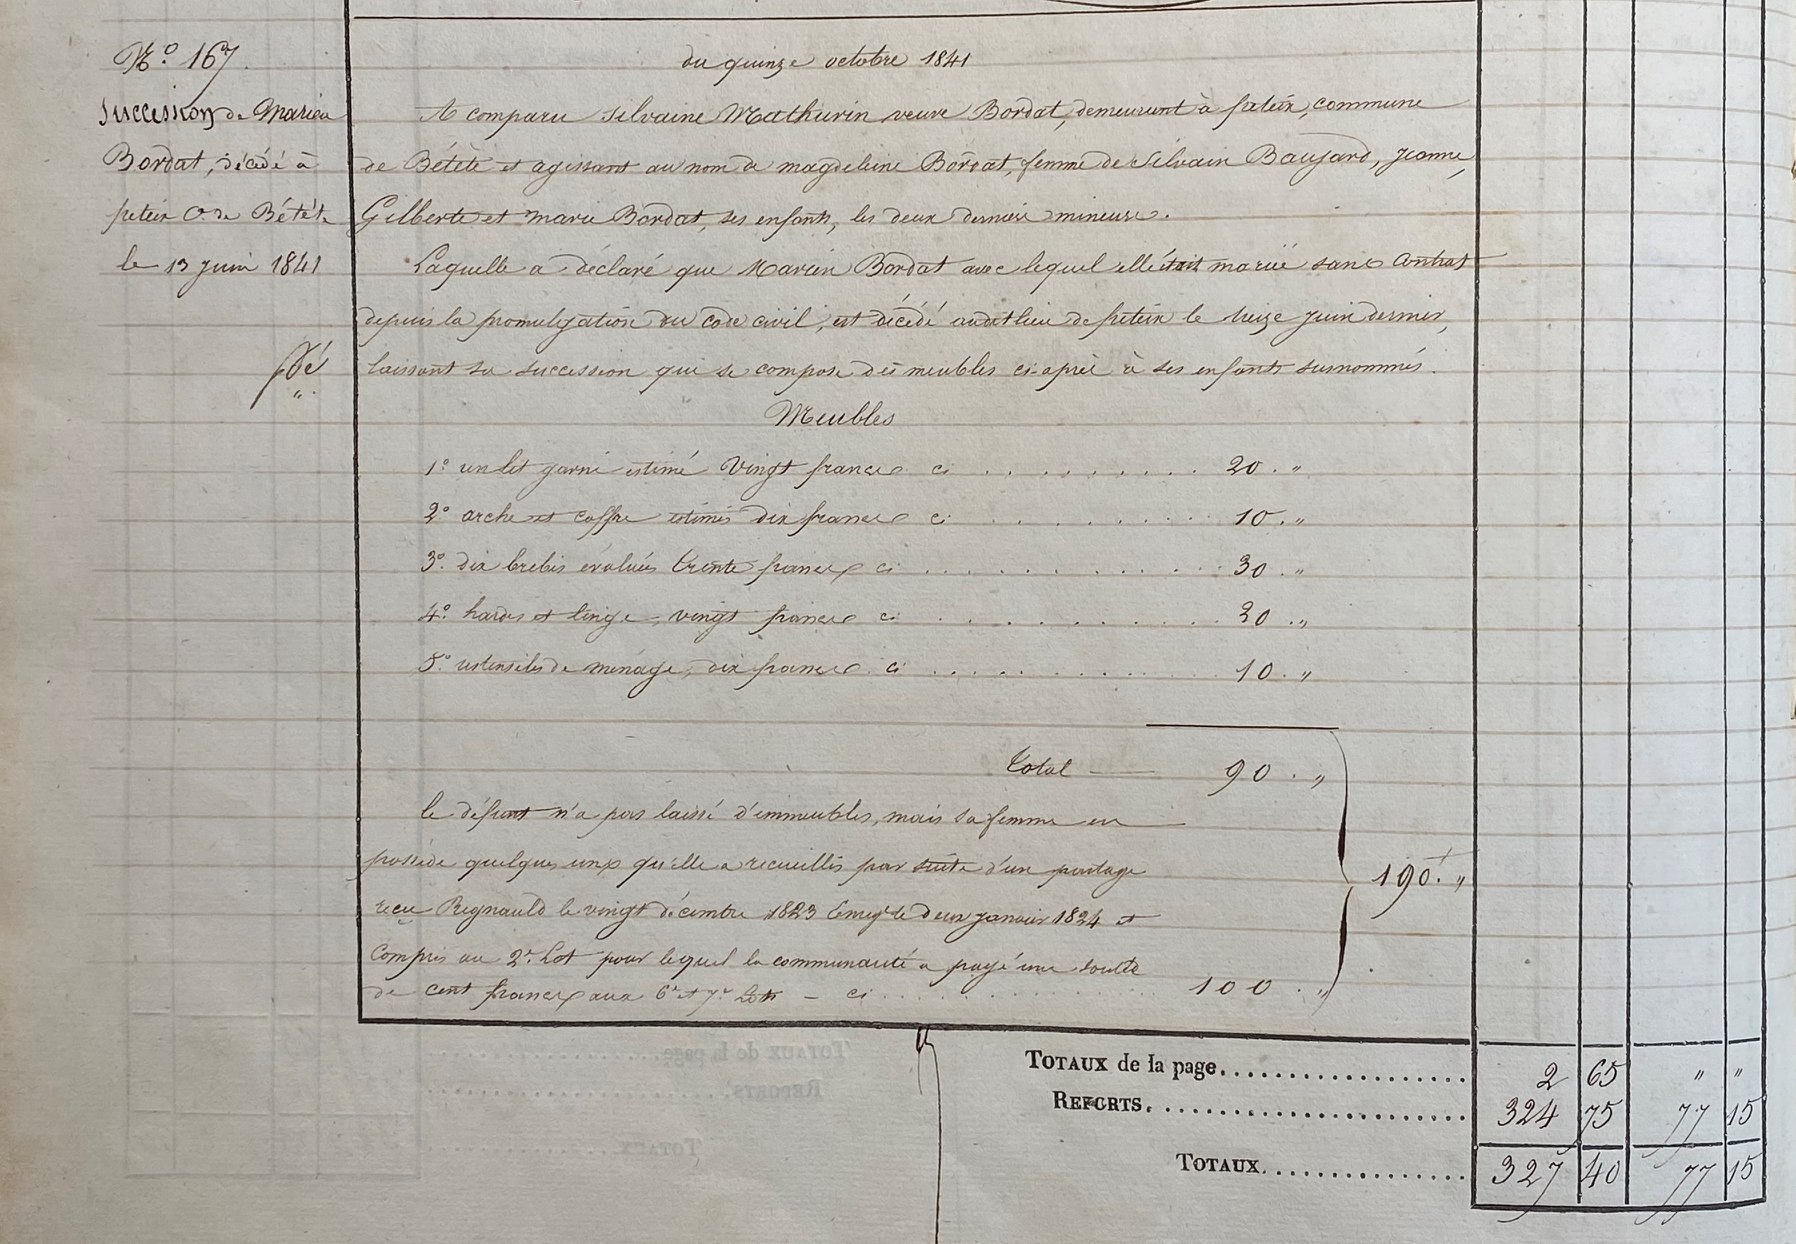 N.° 167.
Succession de Marien
Bordat, décédé à
petein C.ne de Bétête
le 13 juin 1841
du quinze octobre 1841
A comparu Silvaine Mathurin veuve Bordat, demeurant à petein, commune
de Bétête et agissant au nom de magdeleine Bordat, femme de Silvain Baujard, jeanne,
Gilberte et marie Bordat, ses enfants, les deux dernières mineures.
Laquelle a déclaré que Marien Bordat avec lequel elle était mariée sans contrat
depuis la promulgation du code civil, est décédé audit lieu de petein le treize juin dernier,
laissant sa succession qui se compose des meubles ci après à ses enfants susnommés.
Meubles
1.° un lit garni estimé vingt francs ci . . . . . . . . . 20 . "
2.° arche et coffre estimés dix francs ci . . . . . . . . . 10 . "
3.° dix brebis évaluées trente francs ci . . . . . . . . . 30 . "
4.° hardes et linge, vingt francs ci . . . . . . . . . 20 . "
5.° ustensiles de ménage, dix francs ci . . . . . . . . . 10 . "
Total — 90 . "
le défunt n'a pas laissé d'immeubles, mais sa femme en
possède quelques uns qu'elle a recueillis par suite d'un partage
190 . "
reçu Regnauld le vingt décembre 1823 Enreg.té le deux janvier 1824 et
compris au 2.e Lot pour lequel la communauté a payé une soulte
de cent francs aux 6.e et 7.e Lots - ci . . . . . . . . . 100 . "
TOTAUX de la page. . . . . . . . . 2 65 " "
REPORTS. . . . . . . . . 324 75 77 15
TOTAUX. . . . . . . . . 327 40 77 15